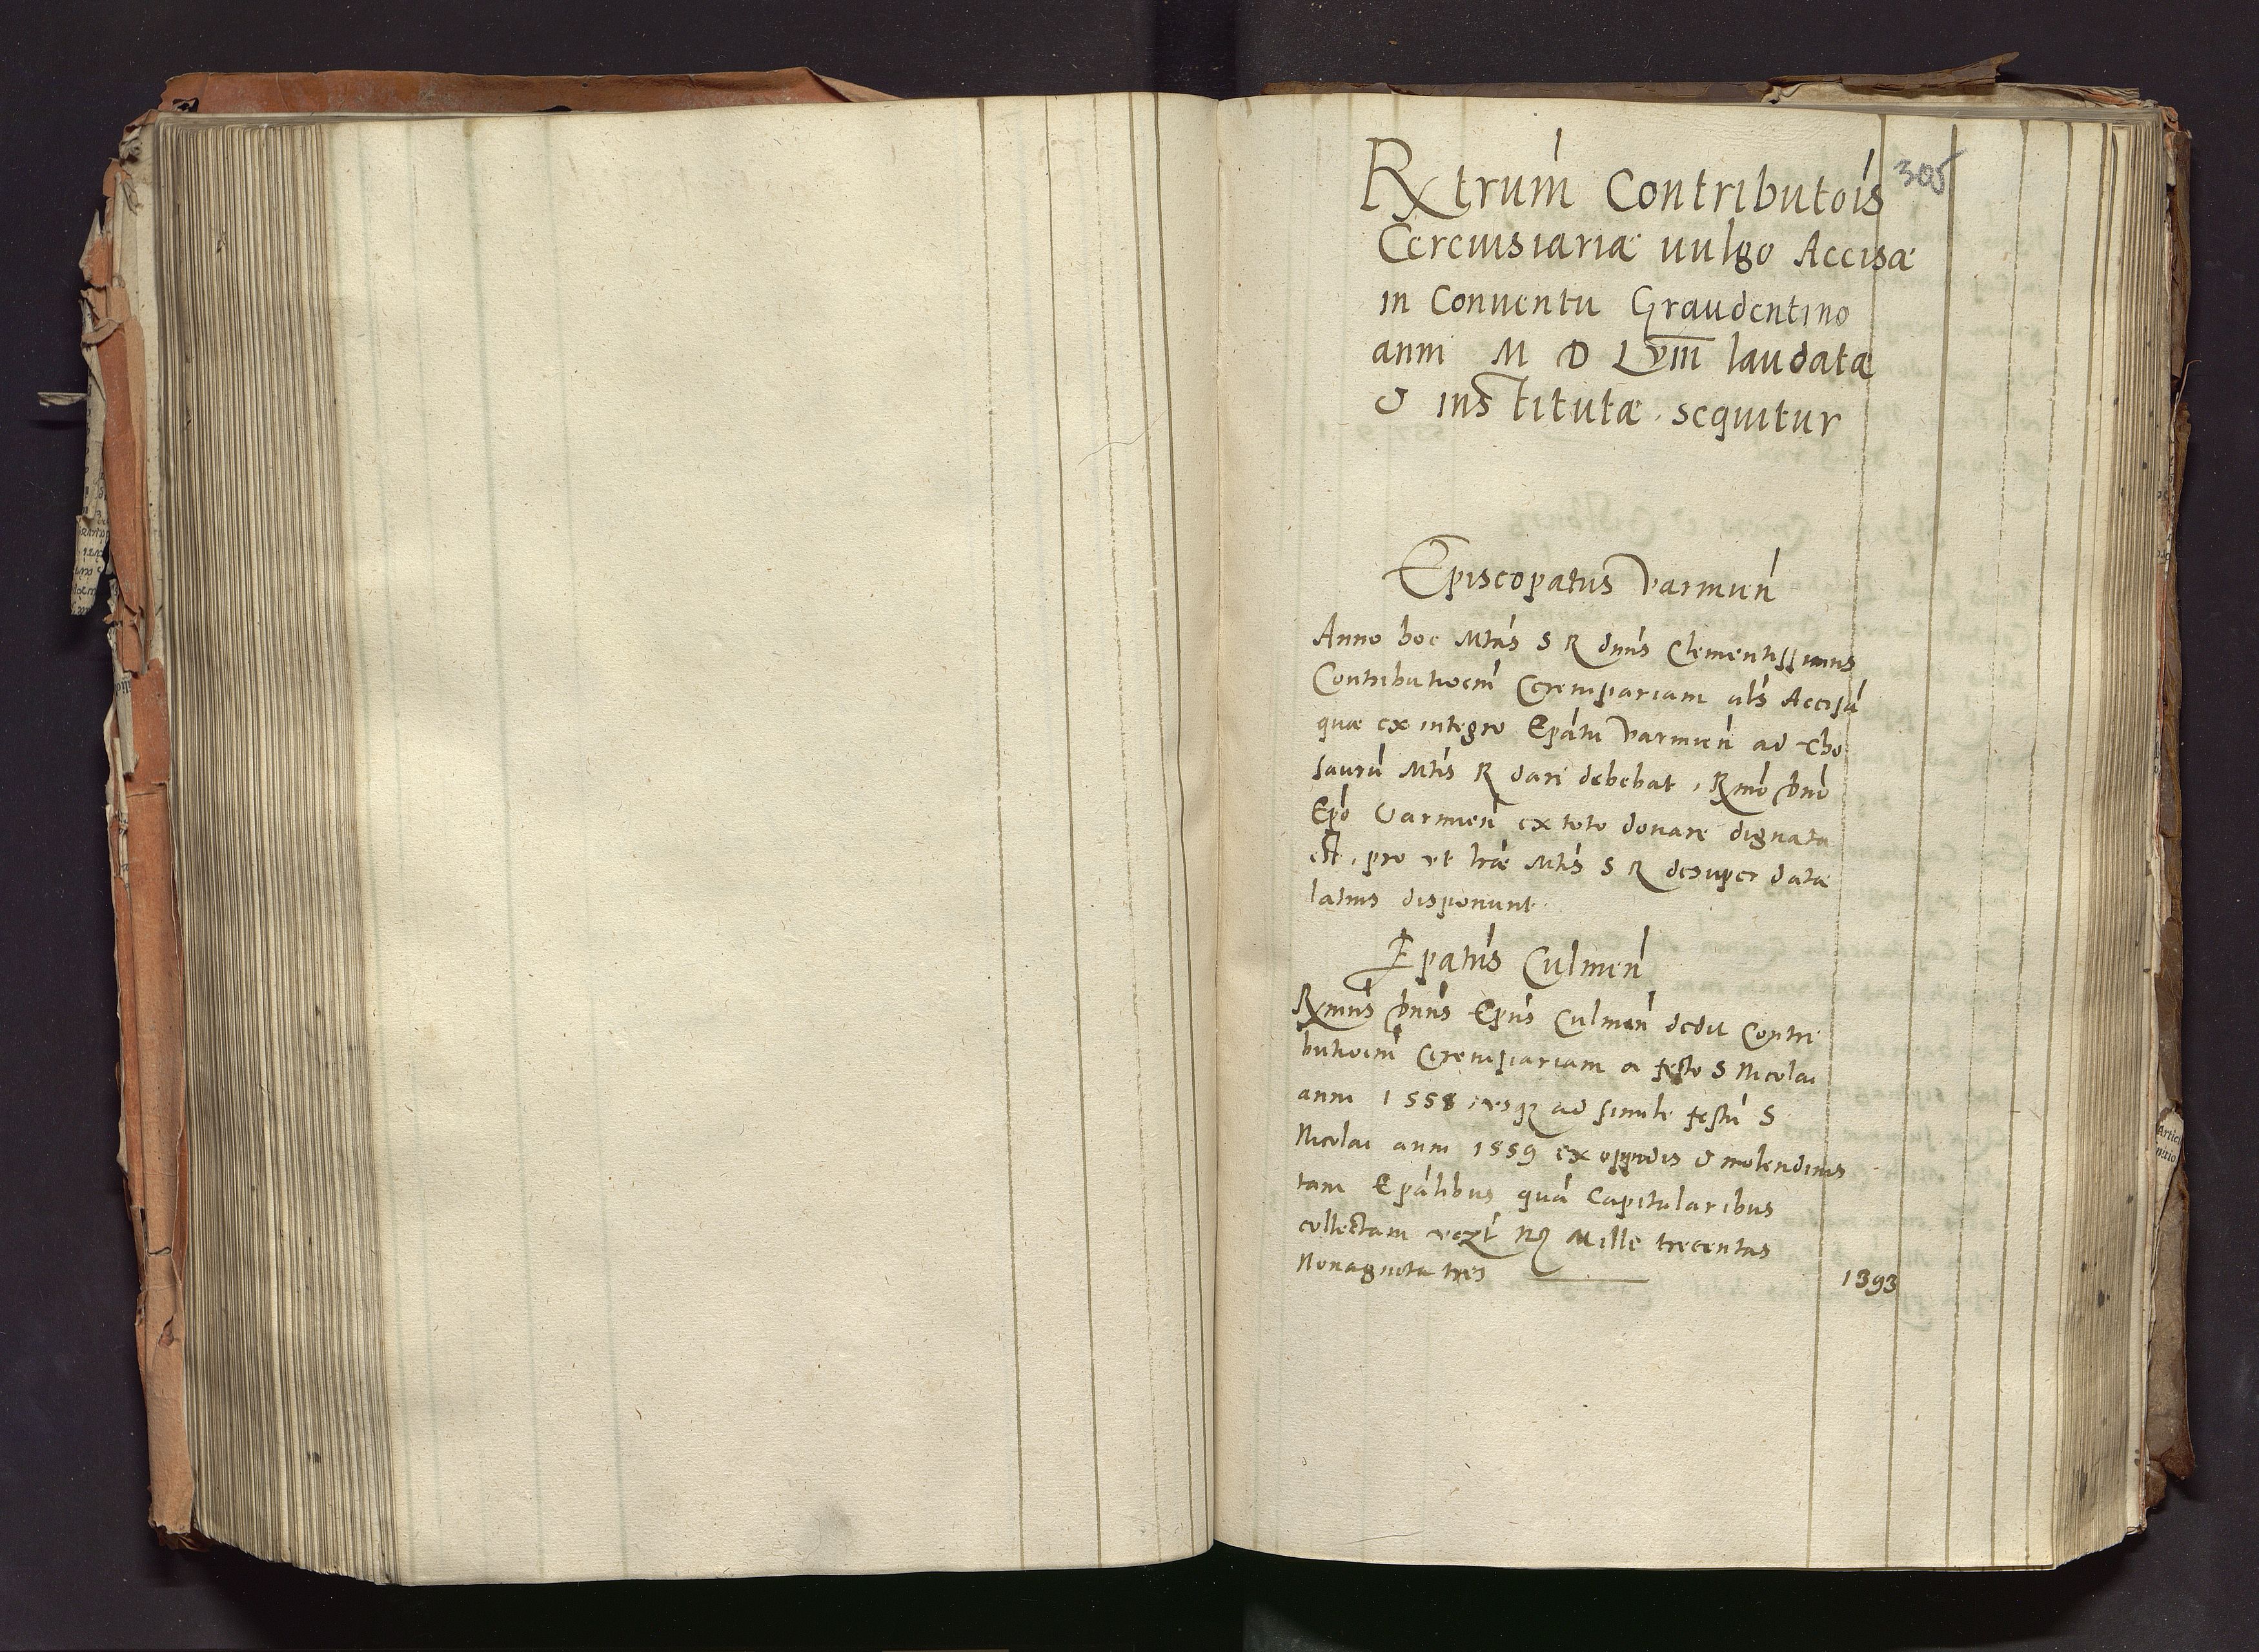 305
Rxtrum Contributois
Cereuisiariæ uulgo Accisæ
in Conuentu Graudentino
anni M D Lviii laudatæ
& institutæ sequitur
Episcopatus Varmień
Anno hoc Mtas S R dnns Clementissimus
Contributioem Cereuisiariam als Accisa
quæ ex integro Epatu Varmień ad The
saurū Mtis R dari debebat, Rmo Dno
Epo Varmień ex toto donare dignata
est, pro ut lræ Mtis S R desuper datæ
latius disponunt
Epatus Culmeń
Rxmus Dnns Epus Culmeń dedit Contri
butioem Cereuisiariam a festo S Nicolai
anni 1558 usq; ad simile festū S
Nicolai anni 1559 ex oppidis & molendinis
tam Epalibus quā Capitularibus
collectam Mille trecentas
Nonaginta tres 1393